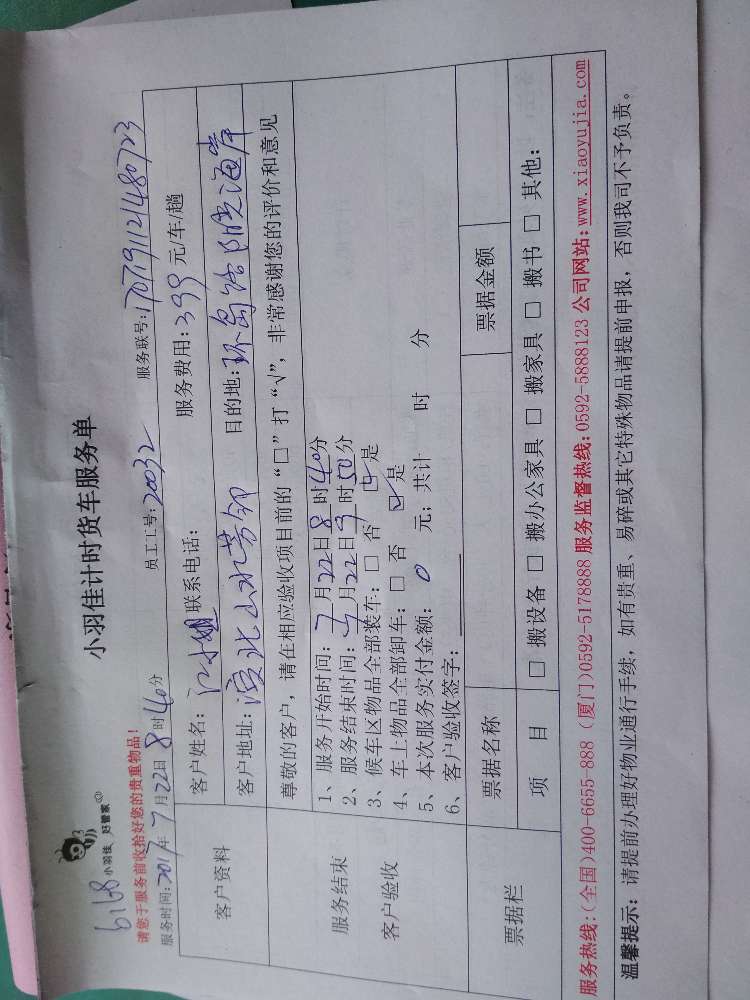 小羽佳计时货车服务单
6168
小羽佳 好管家
请您于服务前收拾好您的贵重物品!
服务时间:2017年7月22日8时40分 员工工号:20032 服务联号:
客户资料
客户姓名: 江小姐 联系电话: 服务费用:399 元/车/趟
客户地址: 山水芳邻 目的地:环岛路
服务结束
客户验收
尊敬的客户，请在相应验收项目前的“□”打“√”，非常感谢您的评价和意见
1、服务开始时间:7月22日8时40分
2、服务结束时间:7月22日9时50分
3、候车区物品全部装车:□ 否 ☑是
4、车上物品全部卸车:□ 否 ☑是
5、本次服务实付金额: 0 元;共计 时 分
6、客户验收签字:
票据栏
票据名称 票据金额
项 目 □ 搬设备 □ 搬办公家具 □ 搬家具 □ 搬书 □ 其他:
服务热线:(全国)400-6655-888 (厦门)0592-5178888 服务监督热线:0592-5888123 公司网站:www.xiaoyujia.com
温馨提示: 请提前办理好物业通行手续，如有贵重、易碎或其它特殊物品请提前申报，否则我司不予负责。